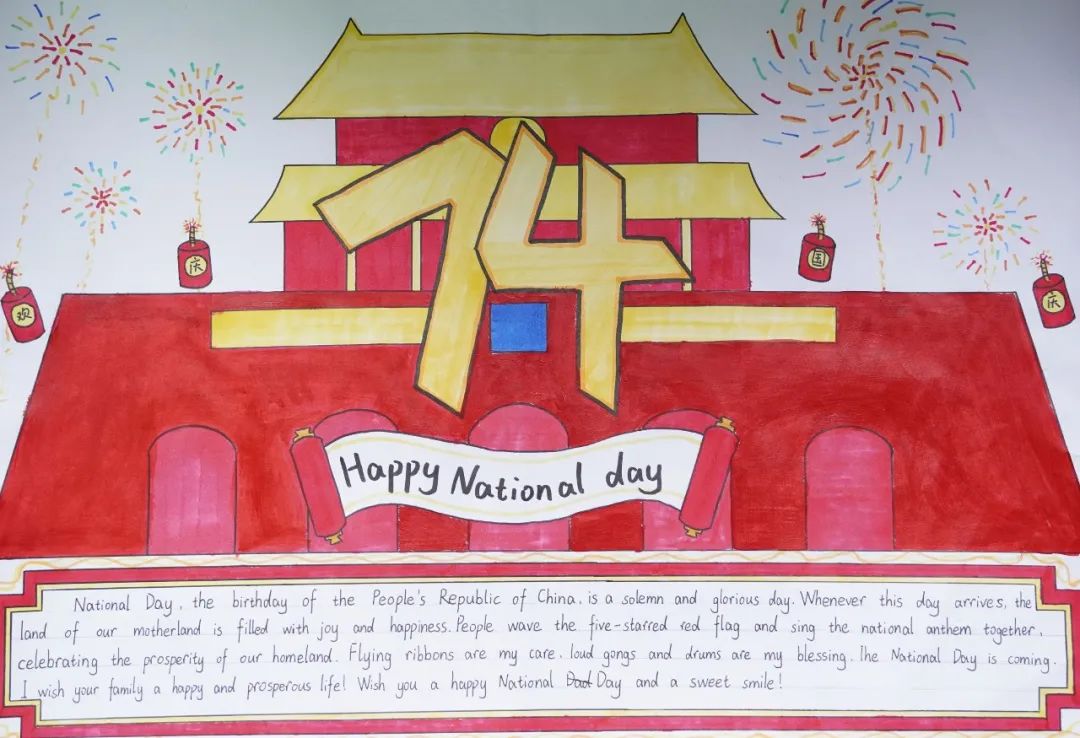 74
庆
国
欢
庆
Happy National day
National Day, the birthday of the People's Republic of China, is a solemn and glorious day. Whenever this day arrives, the
land of our motherland is filled with joy and happiness. People wave the five-starred red flag and sing the national anthem together,
celebrating the prosperity of our homeland. Flying ribbons are my care, loud gongs and drums are my blessing. The National Day is coming.
I wish your family a happy and prosperous life! Wish you a happy National Day and a sweet smile!